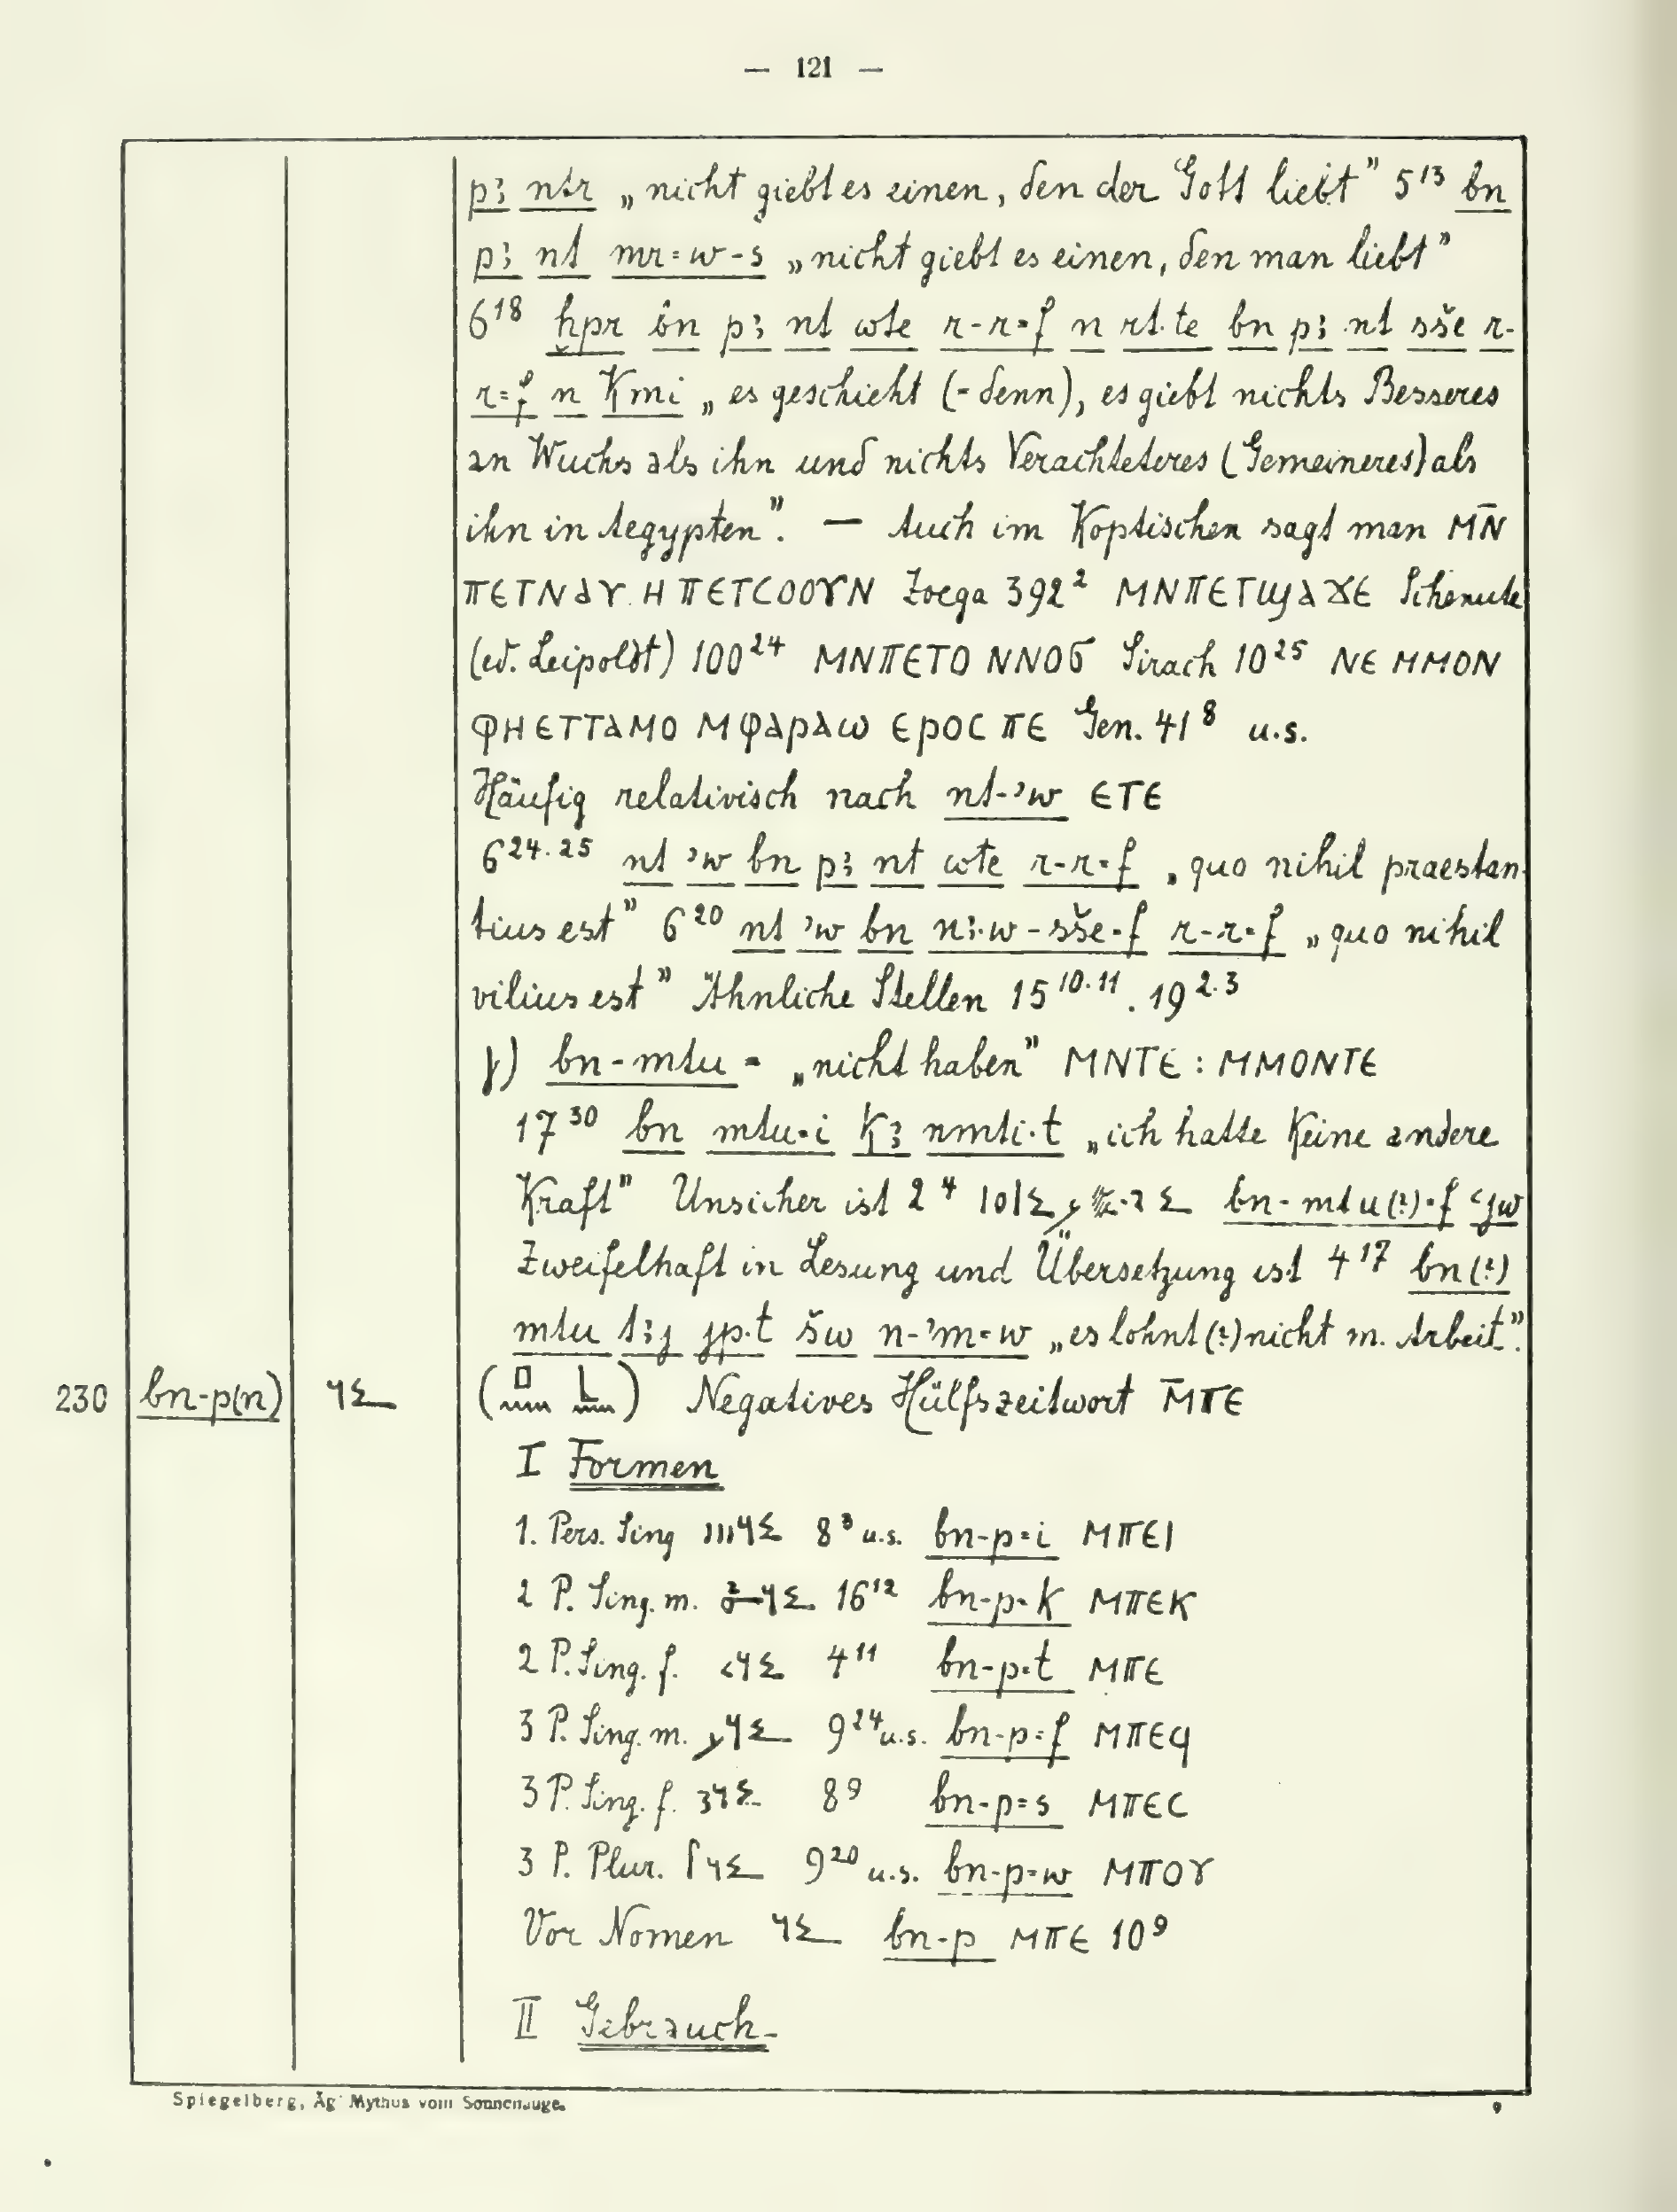 — 121 —
pꜣ ntr „nicht giebt es einen, den der Gott liebt” 5¹³ bn
pꜣ nt mr=w-s „nicht giebt es einen, den man liebt”
6¹⁸ ḫpr bn pꜣ nt wte r-r=f n rt.te bn pꜣ nt sše r-
r=f n Kmi „es geschieht (=denn), es giebt nichts Besseres
an Wuchs als ihn und nichts Verachteteres (Gemeineres) als
ihn in Aegypten”. — Auch im Koptischen sagt man ⲘⲚ̄
ⲠⲈⲦⲚⲀⲨ Ⲏ ⲠⲈⲦⲤⲞⲞⲨⲚ Zoega 392² ⲘⲚⲠⲈⲦϢⲀϪⲈ Schenute
(ed. Leipoldt) 100²⁴ ⲘⲚⲠⲈⲦⲞ ⲚⲚⲞϬ Sirach 10²⁵ ⲚⲈ ⲘⲘⲞⲚ
ⲪⲎⲈⲦⲦⲀⲘⲞ ⲘⲪⲀⲢⲀⲰ ⲈⲢⲞⲤ ⲠⲈ Gen. 41⁸ u.s.
Häufig relativisch nach nt-ʾw ⲈⲦⲈ
6²⁴·²⁵ nt ʾw bn pꜣ nt wte r-r=f „quo nihil praestan-
tius est” 6²⁰ nt ʾw bn nꜣ.w-sše=f r-r=f „quo nihil
vilius est” Ähnliche Stellen 15¹⁰·¹¹. 19²·³
γ) bn-mtu= „nicht haben” ⲘⲚⲦⲈ : ⲘⲘⲞⲚⲦⲈ
17³⁰ bn mtu=i Kꜣ nmti.t „ich hatte Keine andere
Kraft” Unsicher ist 2⁴ bn-mtu(?)=f ʿjw
Zweifelhaft in Lesung und Übersetzung ist 4¹⁷ bn(?)
mtu tꜣj jp.t šw n-ʾm=w „es lohnt(?) nicht m. Arbeit.”
230 bn-p(n) ( ) Negatives Hülfszeitwort Ⲙ̄ⲠⲈ
I Formen
1. Pers. Sing 8³ u.s. bn-p=i ⲘⲠⲈⲒ
2 P. Sing. m. 16¹² bn-p=k ⲘⲠⲈⲔ
2 P. Sing. f. 4¹¹ bn-p=t ⲘⲠⲈ
3 P. Sing. m. 9²⁴ u.s. bn-p=f ⲘⲠⲈϤ
3 P. Sing. f. 8⁹ bn-p=s ⲘⲠⲈⲤ
3 P. Plur. 9²⁰ u.s. bn-p=w ⲘⲠⲞⲨ
Vor Nomen bn-p ⲘⲠⲈ 10⁹
II Gebrauch
Spiegelberg, Äg Mythus vom Sonnenauge. 9